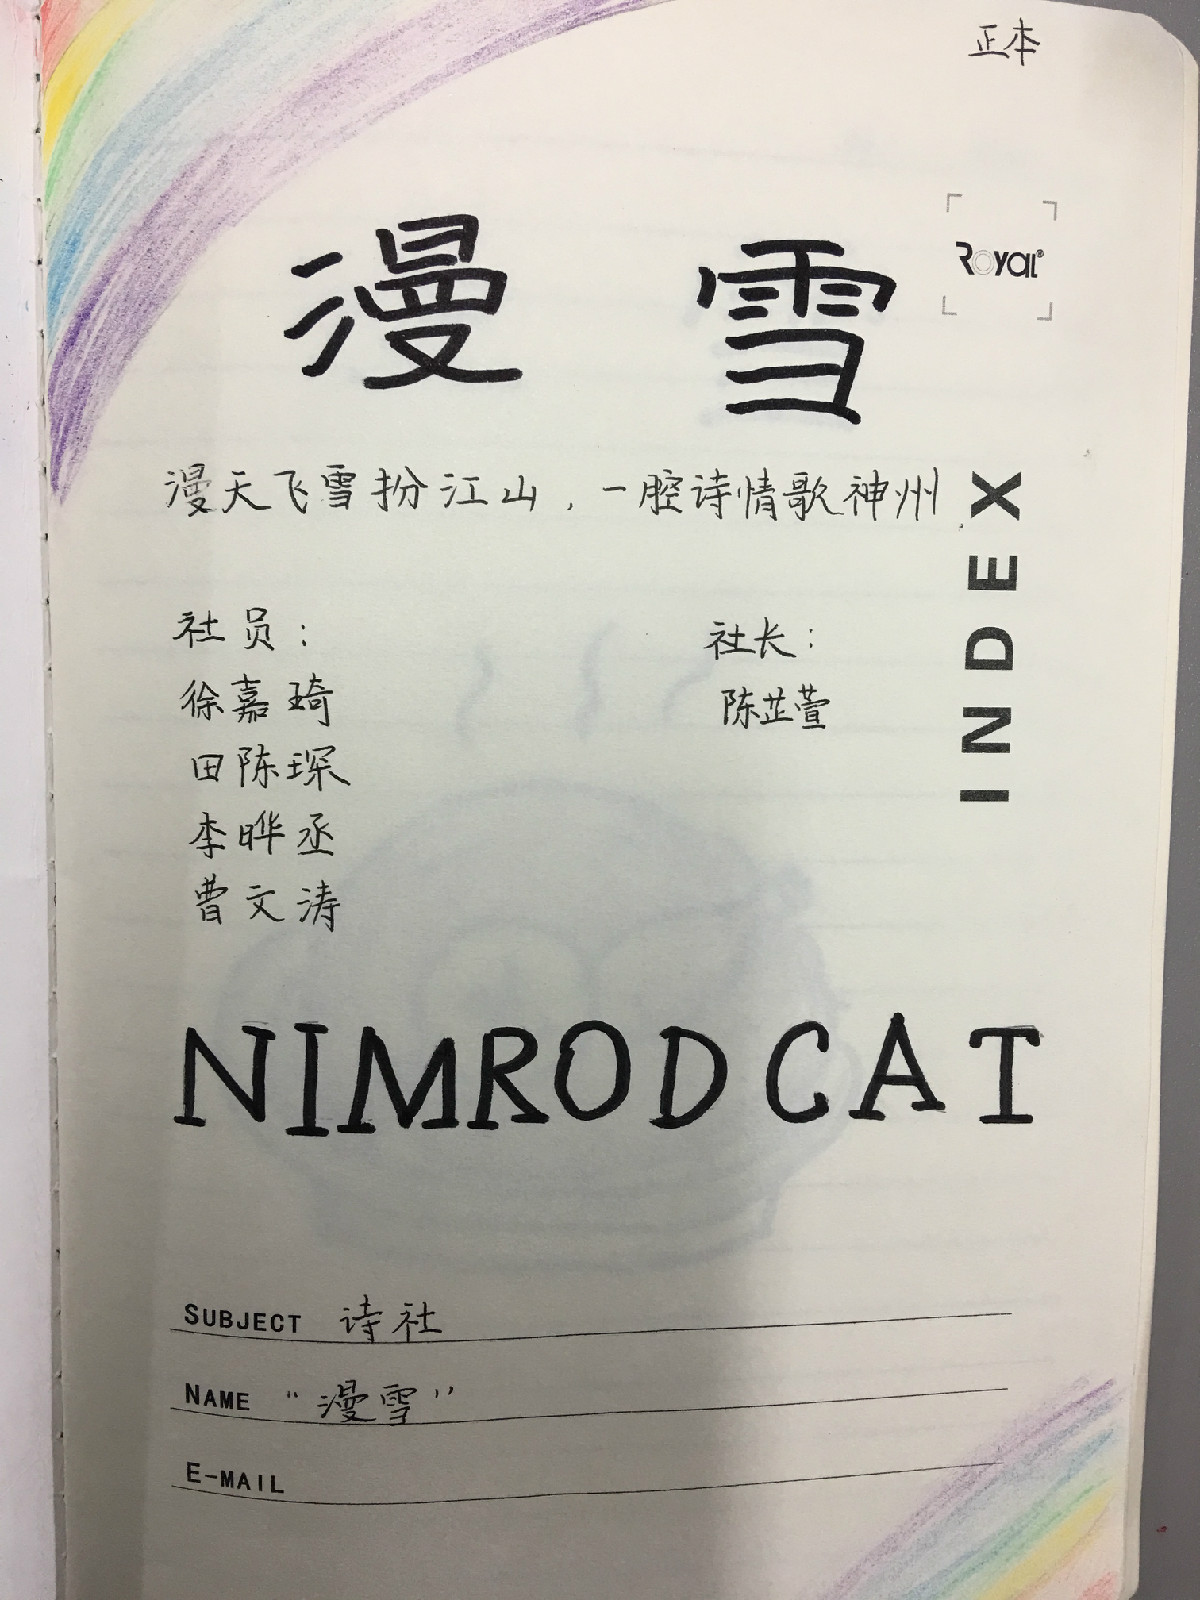 正本
漫雪
Royal®
漫天飞雪扮江山，一腔诗情歌神州.
INDEX
社员：
徐嘉琦
田陈琛
李晔丞
曹文涛
社长：
陈芷萱
NIMROD CAT
SUBJECT 诗社
NAME “漫雪”
E-MAIL